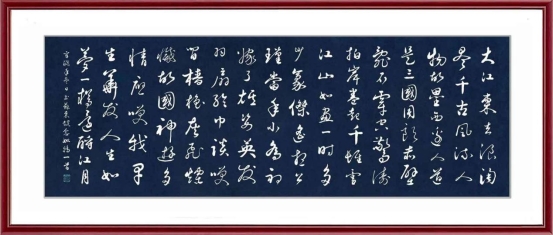 大江東去浪淘
盡千古風流人
物故壘西邊人道
是三國周郎赤壁
亂石穿空驚濤
拍岸卷起千堆雪
江山如畫一時多
少豪傑遙想公
瑾當年小喬初
嫁了雄姿英發
羽扇綸巾談笑
間檣櫓灰飛煙
滅故國神遊多
情應笑我早
生華发人生如
夢一樽還酹江月